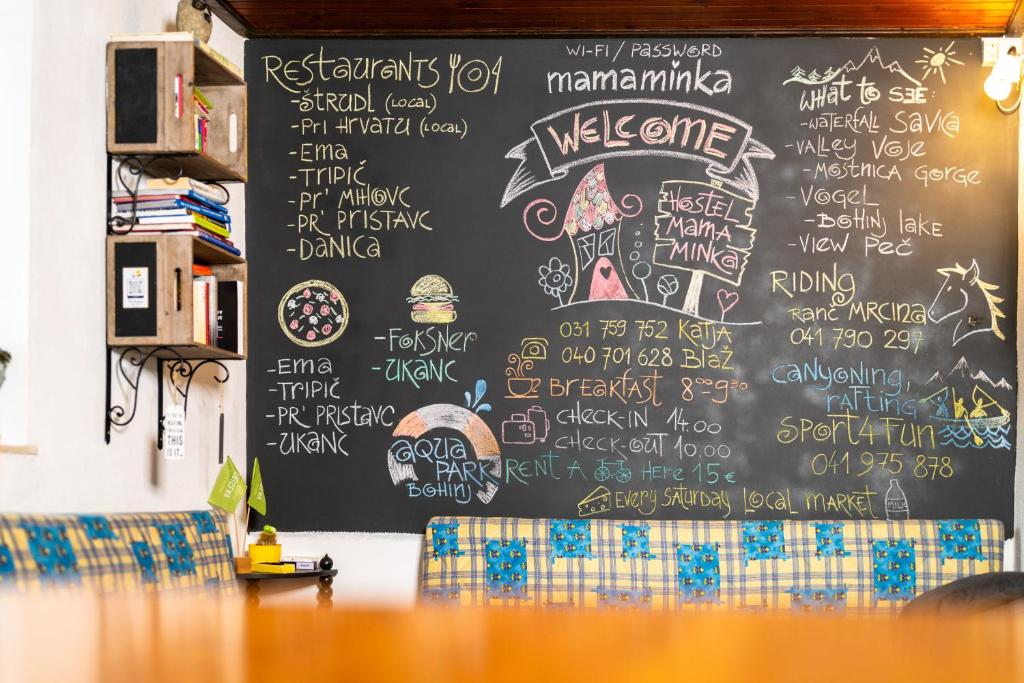 RESTAURANTS
-ŠTRUDL (LOCAL)
-PRI HRVATU (LOCAL)
-EMA
-TRIPIČ
-PR' MIHOVC
-PR' PRISTAVC
-DANICA
-EMA
-TRIPIČ
-PR' PRISTAVC
-UKANC
-FOKSNER
-UKANC
AQUA
PARK
BOHINJ
WI-FI / PASSWORD
mamaminka
WELCOME
HOSTEL
MAMA
MINKA
031 759 752 KATJA
040 701 628 BLAŽ
BREAKFAST 8⁰⁰-9³⁰
CHECK-IN 14.00
CHECK-OUT 10.00
RENT A HERE 15€
EVERY SATURDAY LOCAL MARKET
MILK
WHAT TO SEE:
-WATERFALL SAVICA
-VALLEY VOJE
-MOSTNICA GORGE
-VOGEL
-BOHINJ LAKE
-VIEW PEČ
RIDING
RANČ MRCINA
041 790 297
CANYONING,
RAFTING
SPORT4FUN
041 975 878
THIS
IS IT.